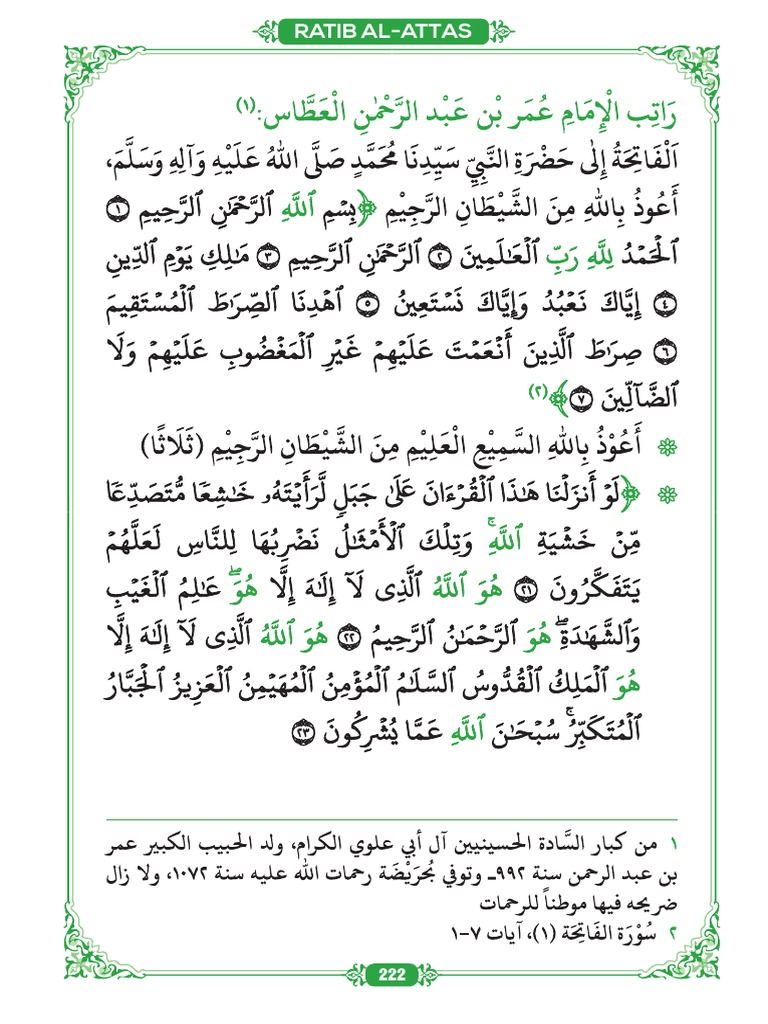 RATIB AL-ATTAS
رَاتِب الْإِمَامِ عُمَر بْن عَبْد الرَّحْمٰنِ الْعَطَّاس:(١)
اَلْفَاتِحَةُ إِلٰى حَضْرَةِ النَّبِيِّ سَيِّدِنَا مُحَمَّدٍ صَلَّى اللهُ عَلَيْهِ وَآلِهِ وَسَلَّمَ،
أَعُوذُ بِاللهِ مِنَ الشَّيْطَانِ الرَّجِيْمِ ﴿بِسْمِ ٱللَّهِ ٱلرَّحْمَٰنِ ٱلرَّحِيمِ ١
ٱلْحَمْدُ لِلَّهِ رَبِّ ٱلْعَٰلَمِينَ ٢ ٱلرَّحْمَٰنِ ٱلرَّحِيمِ ٣ مَٰلِكِ يَوْمِ ٱلدِّينِ
٤ إِيَّاكَ نَعْبُدُ وَإِيَّاكَ نَسْتَعِينُ ٥ ٱهْدِنَا ٱلصِّرَٰطَ ٱلْمُسْتَقِيمَ
٦ صِرَٰطَ ٱلَّذِينَ أَنْعَمْتَ عَلَيْهِمْ غَيْرِ ٱلْمَغْضُوبِ عَلَيْهِمْ وَلَا
ٱلضَّآلِّينَ ٧﴾(٢)
أَعُوْذُ بِاللهِ السَّمِيْعِ الْعَلِيْمِ مِنَ الشَّيْطَانِ الرَّجِيْمِ (ثَلَاثًا)
﴿لَوْ أَنزَلْنَا هَٰذَا ٱلْقُرْءَانَ عَلَىٰ جَبَلٍ لَّرَأَيْتَهُۥ خَٰشِعًا مُّتَصَدِّعًا
مِّنْ خَشْيَةِ ٱللَّهِۚ وَتِلْكَ ٱلْأَمْثَٰلُ نَضْرِبُهَا لِلنَّاسِ لَعَلَّهُمْ
يَتَفَكَّرُونَ ٢١ هُوَ ٱللَّهُ ٱلَّذِى لَآ إِلَٰهَ إِلَّا هُوَۖ عَٰلِمُ ٱلْغَيْبِ
وَٱلشَّهَٰدَةِۖ هُوَ ٱلرَّحْمَٰنُ ٱلرَّحِيمُ ٢٢ هُوَ ٱللَّهُ ٱلَّذِى لَآ إِلَٰهَ إِلَّا
هُوَ ٱلْمَلِكُ ٱلْقُدُّوسُ ٱلسَّلَٰمُ ٱلْمُؤْمِنُ ٱلْمُهَيْمِنُ ٱلْعَزِيزُ ٱلْجَبَّارُ
ٱلْمُتَكَبِّرُۚ سُبْحَٰنَ ٱللَّهِ عَمَّا يُشْرِكُونَ ٢٣
١ من كبار السَّادة الحسينيين آل أبي علوي الكرام، ولد الحبيب الكبير عمر
بن عبد الرحمن سنة ٩٩٢هـ وتوفي بحُرَيْضَة رحمات الله عليه سنة ١٠٧٢، ولا زال
ضريحه فيها موطناً للرحمات
٢ سُوْرَة الفَاتِحَة (١)، آيات ٧-١
222